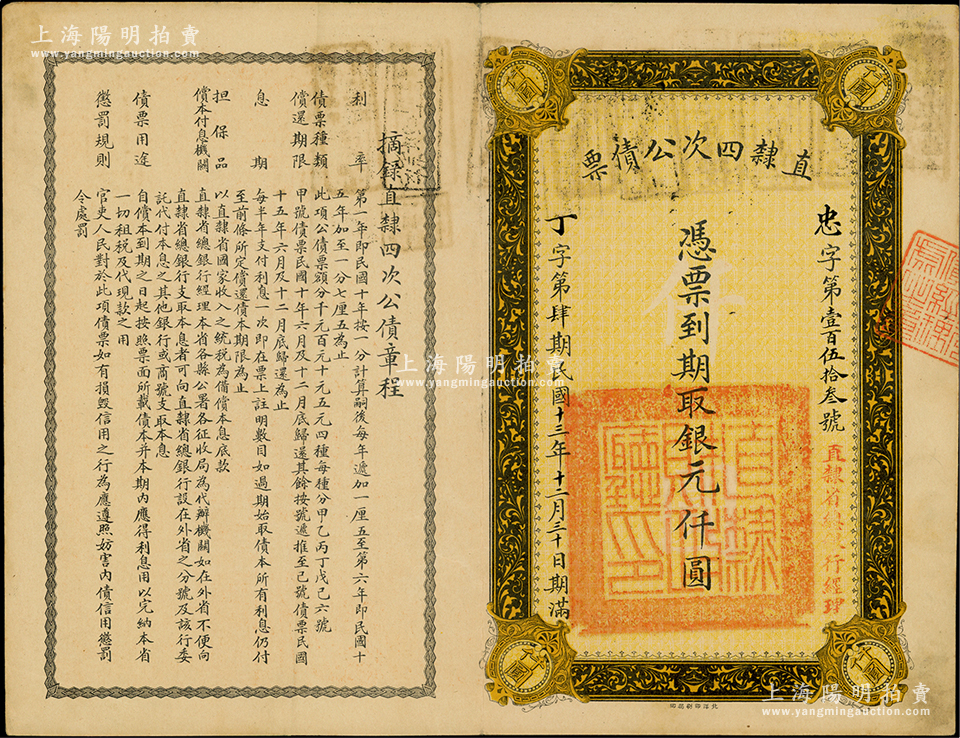 上海陽明拍賣
www.yangmingauction.com
上海陽明拍賣
www.yangmingauction.com
直隸四次公債票
忠字第壹百伍拾叁號
直隸省總銀行經理
憑票到期取銀元仟圓
丁字第肆期民國十三年十二月三十日期滿
直隸財政廳印
北洋印刷局印
摘錄直隸四次公債章程
利率 第一年即民國十年按一分計算嗣後每年遞加一厘五至第六年即民國十
五年加至一分七厘五為止
債票種類 此項公債票額分千元百元十元五元四種每種分甲乙丙丁戊己六號
償還期限 甲號債票民國十年六月及十二月底歸還其餘按號遞推至己號債票民國
十五年六月及十二月底歸還為止
息上期 每半年支付利息一次即在票上註明數目如過期始取債本所有利息仍付
至前條所定償還債本期限為止
担保品 以直隸省國家收入之統稅為備償本息底款
償本付息機關 直隸省總銀行經理本省各縣公署各征收局為代辦機關如在外省不便向
直隸省總銀行支取本息者可向直隸省總銀行設在外省之分號及該行委
託代付本息之其他銀行或商號支取本息
債票用途 自償本到期之日起按照票面所載債本并本期內應得利息用以完納本省
一切租稅及代現款之用
懲罰規則 官吏人民對於此項債票如有損毀信用之行為應遵照妨害內債信用懲罰
令處罰
上海陽明拍賣
www.yangmingauction.com
上海陽明拍賣
www.yangmingauction.com